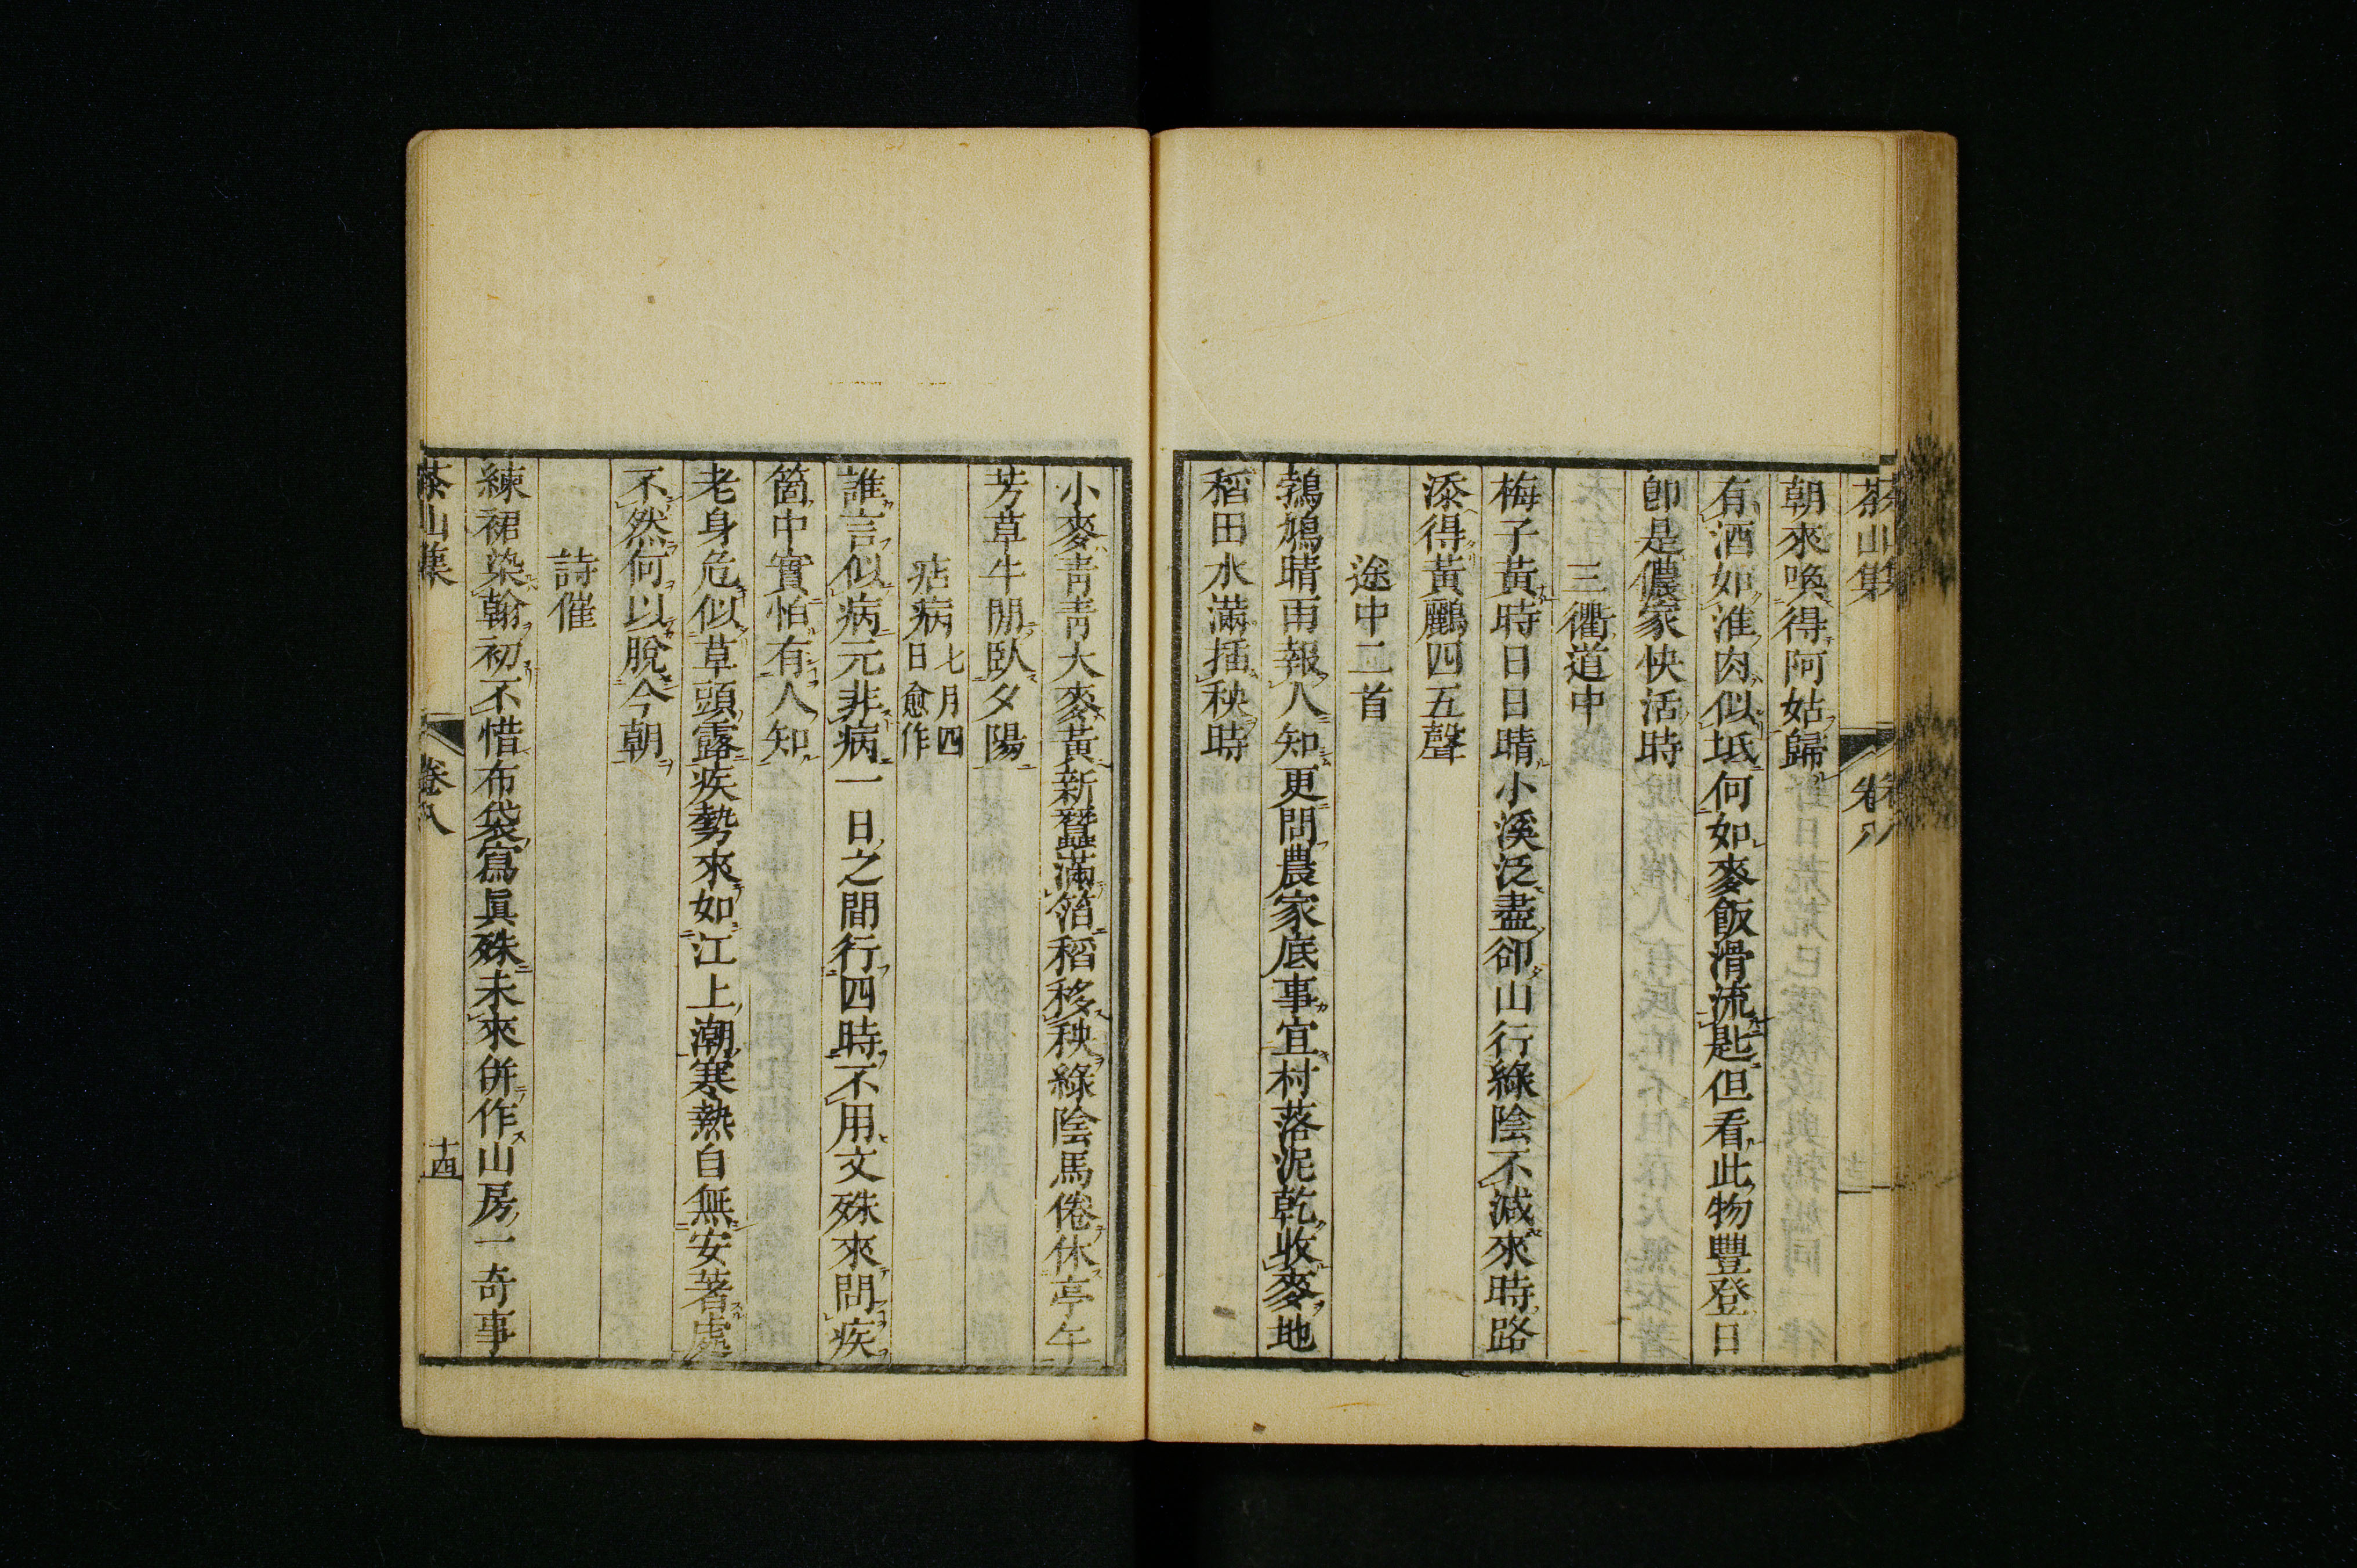 茶山集　卷八
朝來喚得阿姑歸
有酒如淮肉似坻何如麥飯滑流匙但看此物豐登日
卽是儂家快活時
三衢道中
梅子黃時日日晴小溪泛盡卻山行綠陰不減來時路
添得黃鸝四五聲
途中二首
鵓鳩晴雨報人知更問農家底事宜村落泥乾收麥地
稻田水滿插秧時
小麥青青大麥黃新蠶滿箔稻移秧綠陰馬倦休亭午
芳草牛閒臥夕陽
痁病七月四日愈作
誰言似病元非病一日之間行四時不用文殊來問疾
箇中實怕有人知
老身危似草頭露疾勢來如江上潮寒熱自無安著處
不然何以脫今朝
詩催
練裙染翰初不惜布袋寫眞殊未來併作山房一奇事
茶山集　卷八　十四